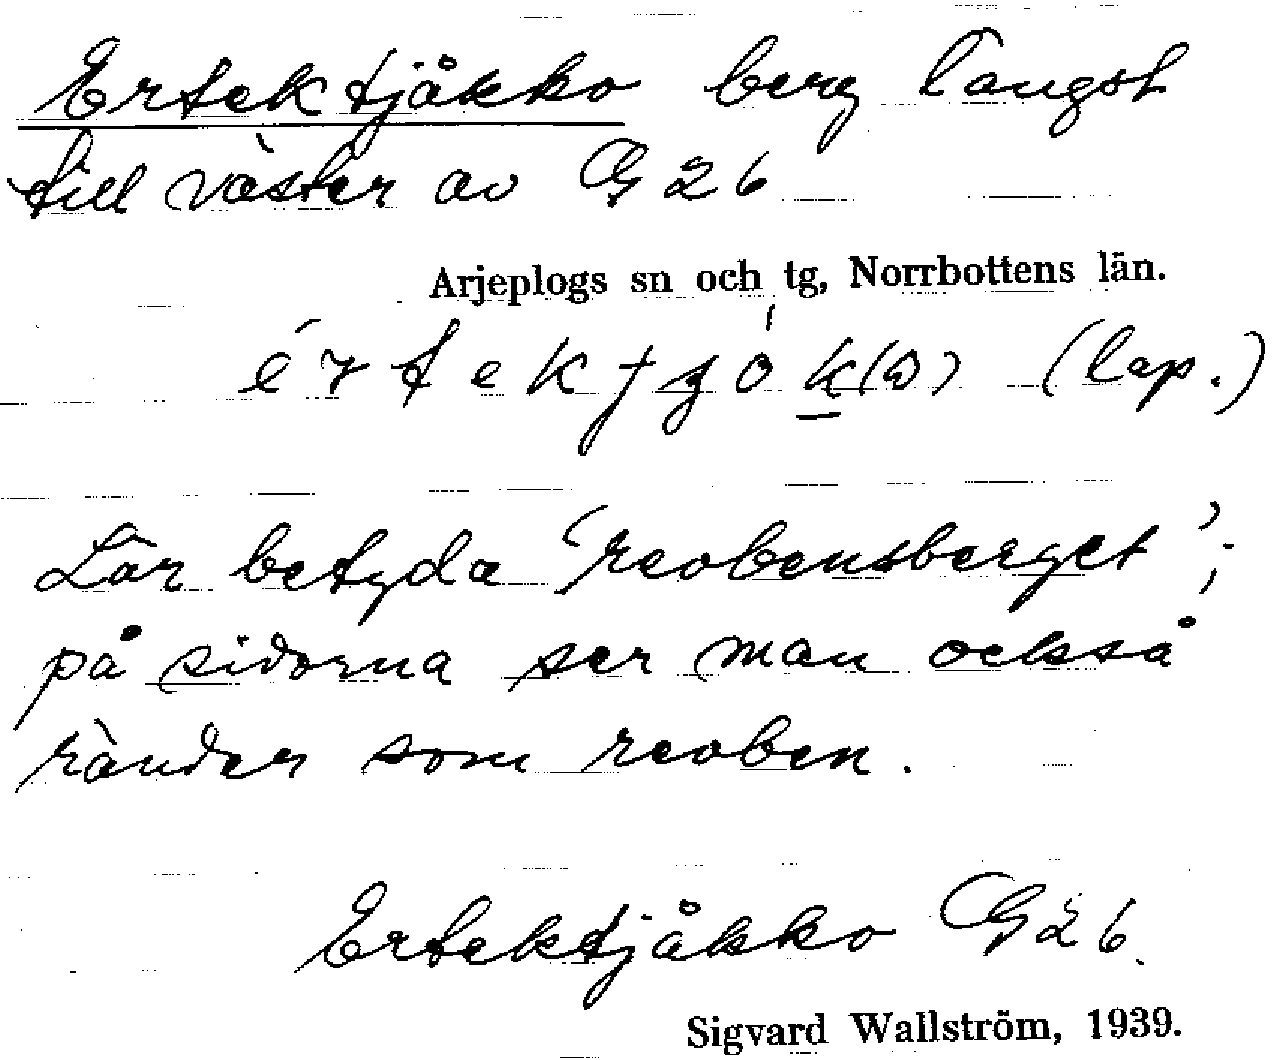 Ertektjåkko berg längst
till väster av G 26
Arjeplogs sn och tg, Norrbottens län.
(lap.)
Lär betyda 'revbensberget';
på sidorna ser man också
ränder som revben.
Ertektjåkko G26.
Sigvard Wallström, 1939.